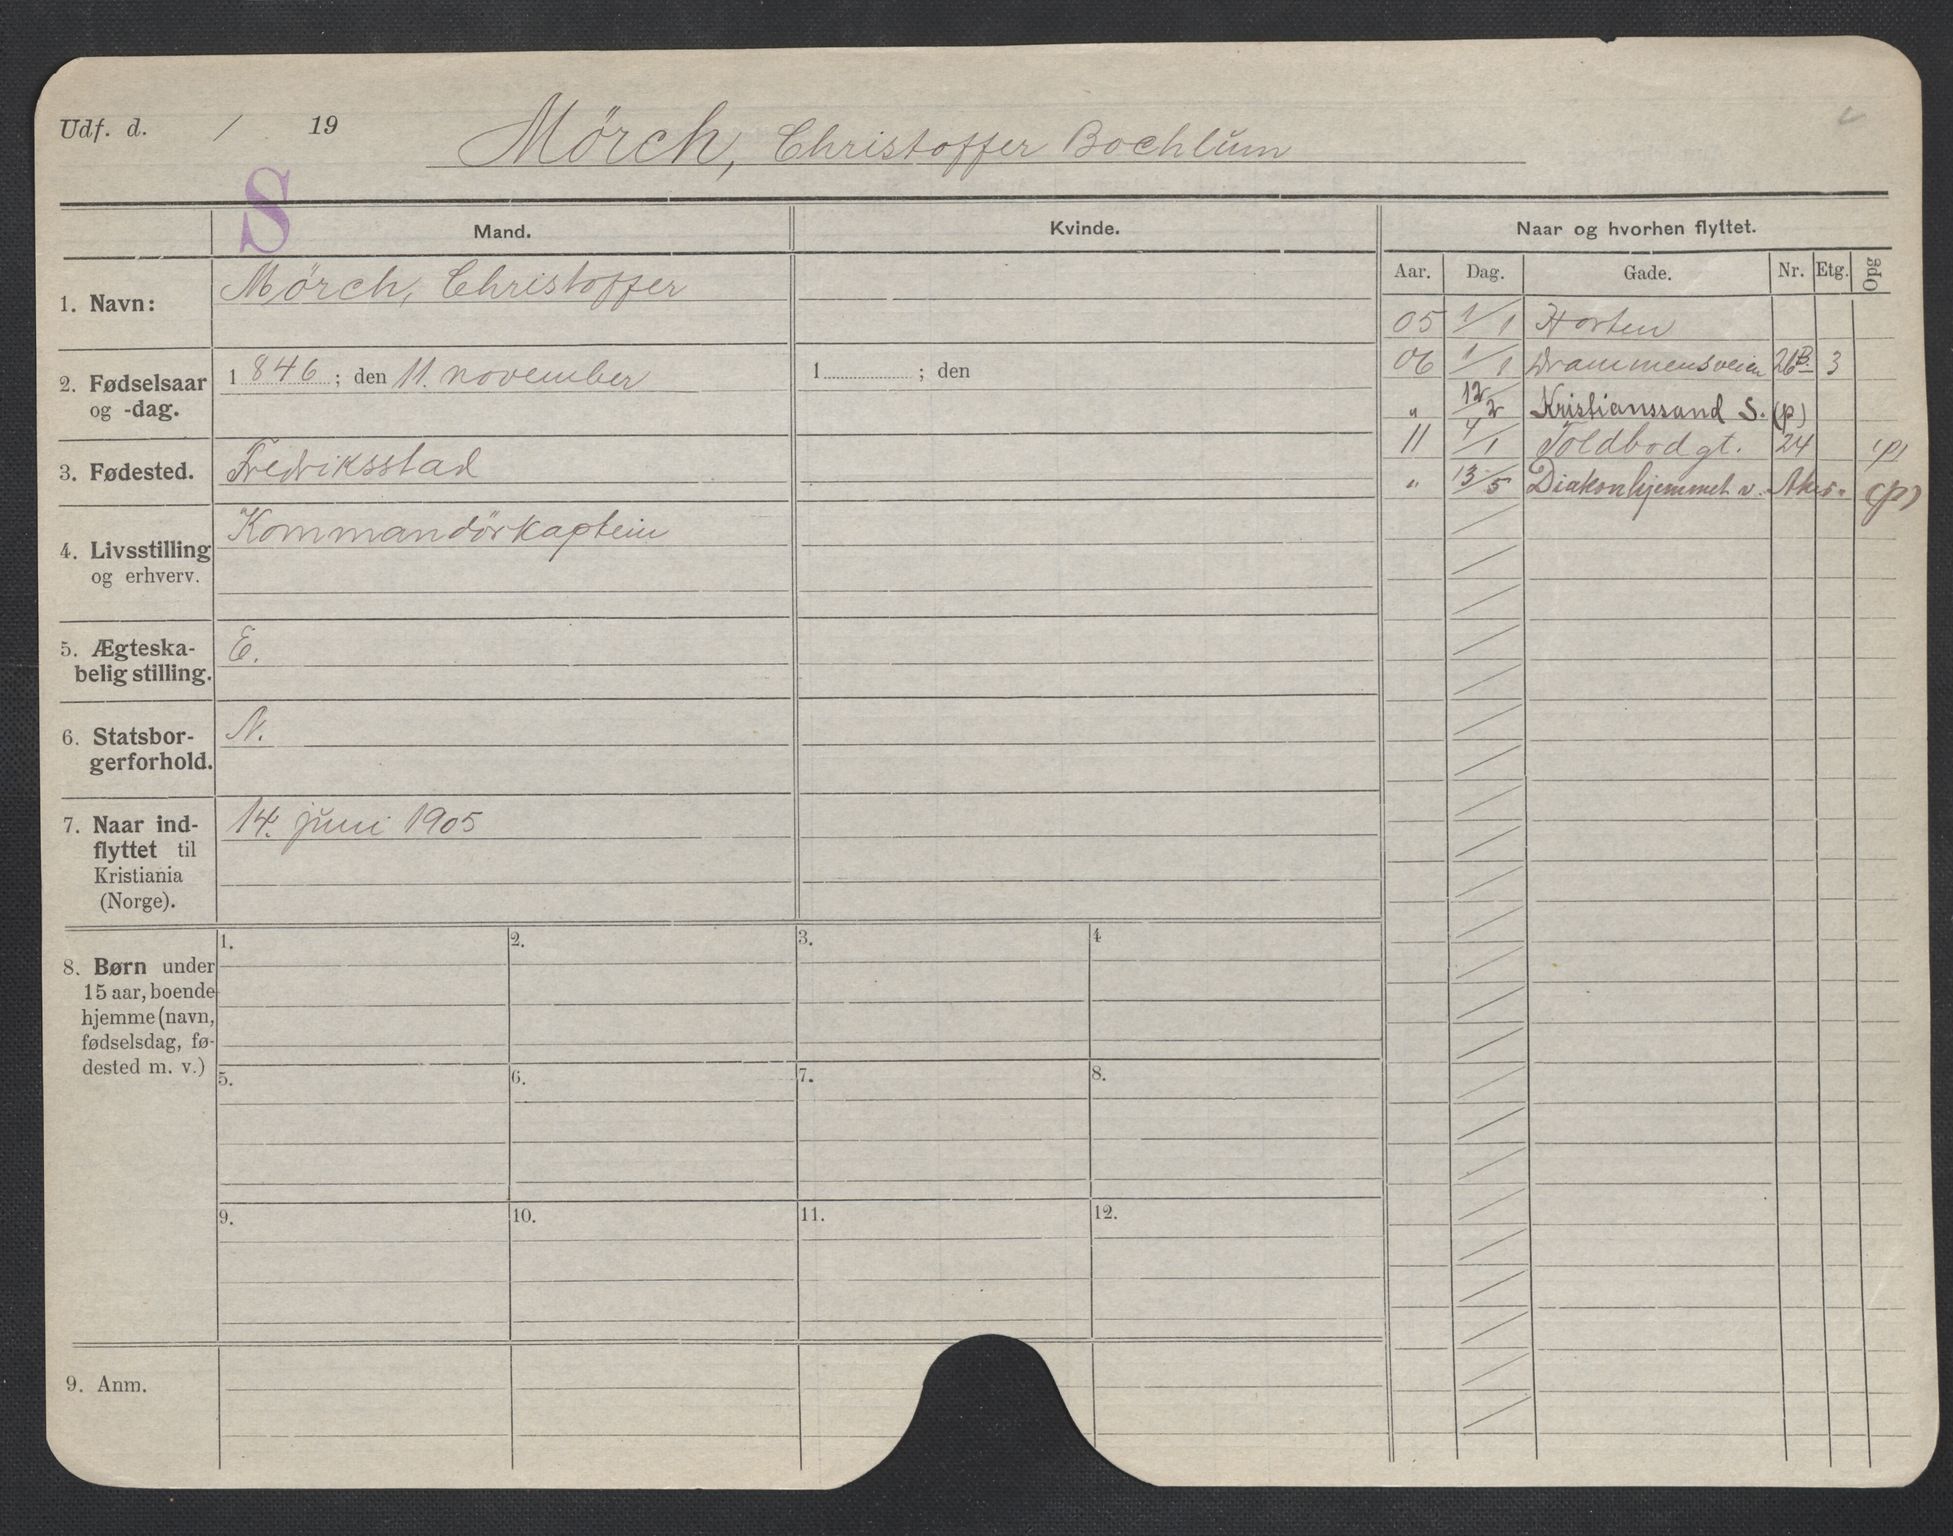 Udf. d. / 19
Mörch, Christoffer Bochlum
S
Mand.
Kvinde.
Naar og hvorhen flyttet.
Aar. Dag. Gade. Nr. Etg. Opg
1. Navn:
Mörch, Christoffer
2. Fødselsaar
og -dag.
1 846 ; den 11. november
1 ; den
3. Fødested.
Fredriksstad
4. Livsstilling
og erhverv.
Kommandörkaptein
5. Ægteska-
belig stilling.
E.
6. Statsbor-
gerforhold.
N.
7. Naar ind-
flyttet til
Kristiania
(Norge).
14. juni 1905
05 1/1 Horten
06 1/1 Drammensveien 26B. 3
" 12/2 Kristianssand S. (p)
11 4/1 Toldbodgt. 24 (p)
" 13/5 Diakonhjemmet v. Aker. (p)
8. Børn under
15 aar, boende
hjemme (navn,
fødselsdag, fø-
dested m. v.)
1. 2. 3. 4
5. 6. 7. 8.
9. 10. 11. 12.
9. Anm.